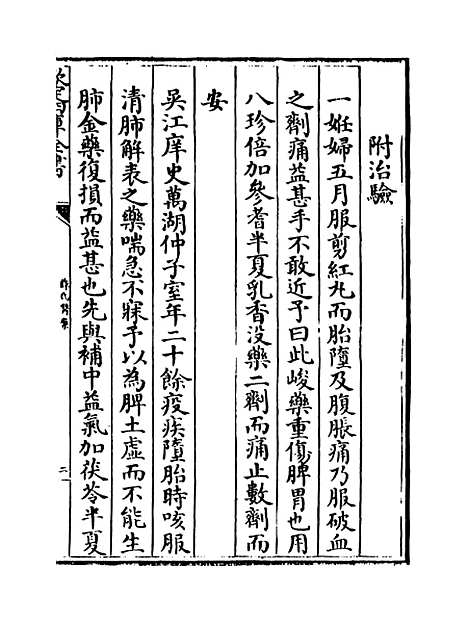 附治驗
一妊婦五月服剪紅丸而胎墮及腹脹痛乃服破血
之劑痛益甚手不敢近予曰此峻藥重傷脾胃也用
八珍倍加參耆半夏乳香没藥二劑而痛止數劑而
安
吳江庠史萬湖仲子室年二十餘疫疾墮胎時咳服
清肺解表之藥喘急不寐予以為脾土虛而不能生
肺金藥復損而益甚也先與補中益氣加茯苓半夏
欽定四庫全書
薛氏醫案
二